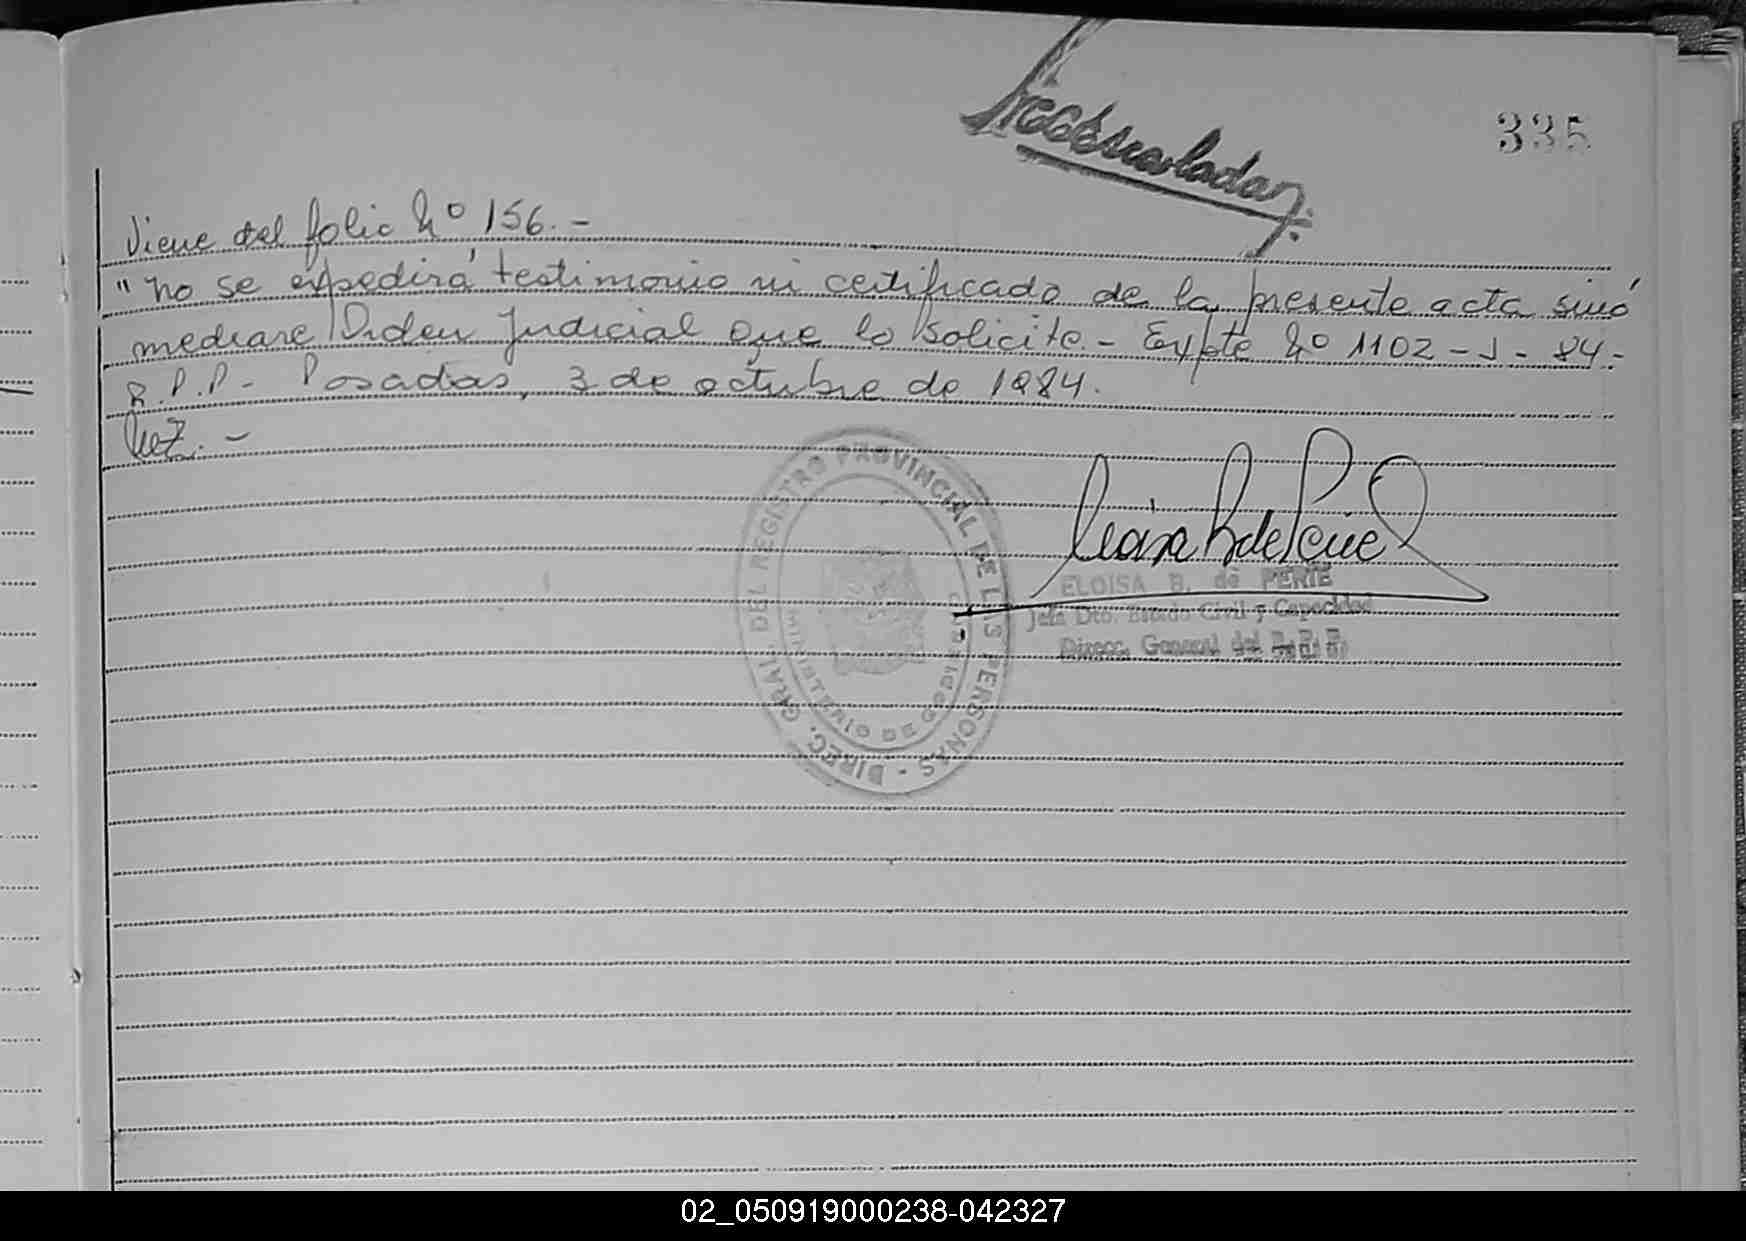 335
Viene del folio Nº 156.-
"no se expedirá testimonio ni certificado de la presente acta sinó
mediare Orden Judicial que lo solicite.- Expte Nº 1102-J-84-
R.P.P- Posadas, 3 de octubre de 1984.
DIREC. GRAL. DEL REGISTRO PROVINCIAL DE LAS PERSONAS -
MINISTERIO DE GOBIERNO
ELOISA B. de PERIE
Jefa Dto. Estado Civil y Capacidad
Direcc. General del R.P.P.
02_050919000238-042327